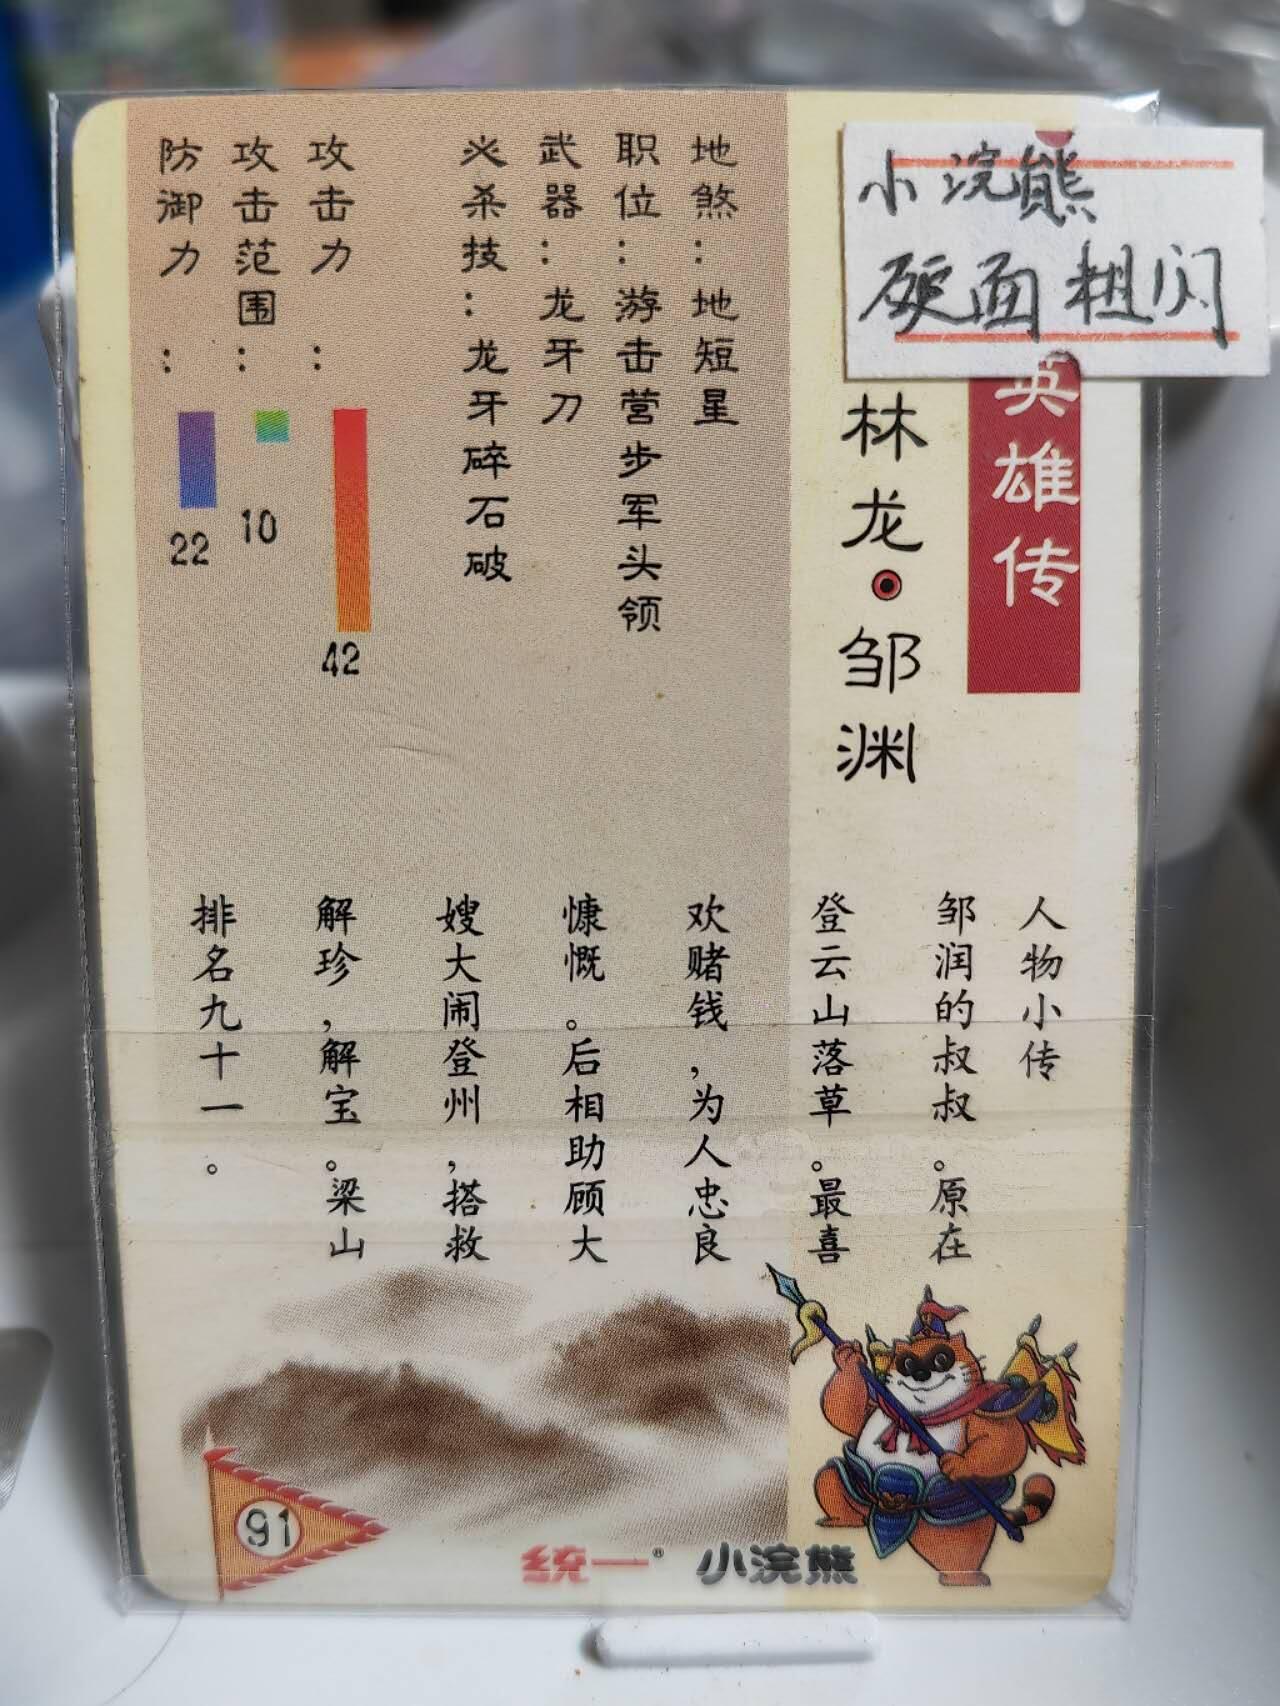 小浣熊
硬面粗闪
英雄传
林龙·邹渊
地煞：地短星
职位：游击营步军头领
武器：龙牙刀
必杀技：龙牙碎石破
攻击力：
42
攻击范围：
10
防御力：
22
人物小传
邹润的叔叔。原在
登云山落草。最喜
欢赌钱，为人忠良
慷慨。后相助顾大
嫂大闹登州，搭救
解珍，解宝。梁山
排名九十一。
91
统一® 小浣熊